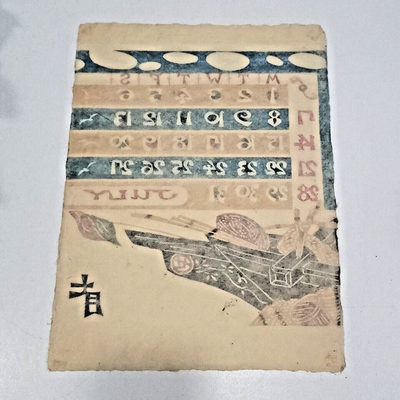 S M T W T F S
1 2 3 4 5 6
7 8 9 10 11 12 13
14 15 16 17 18 19 20
21 22 23 24 25 26 27
28 29 30 31
July